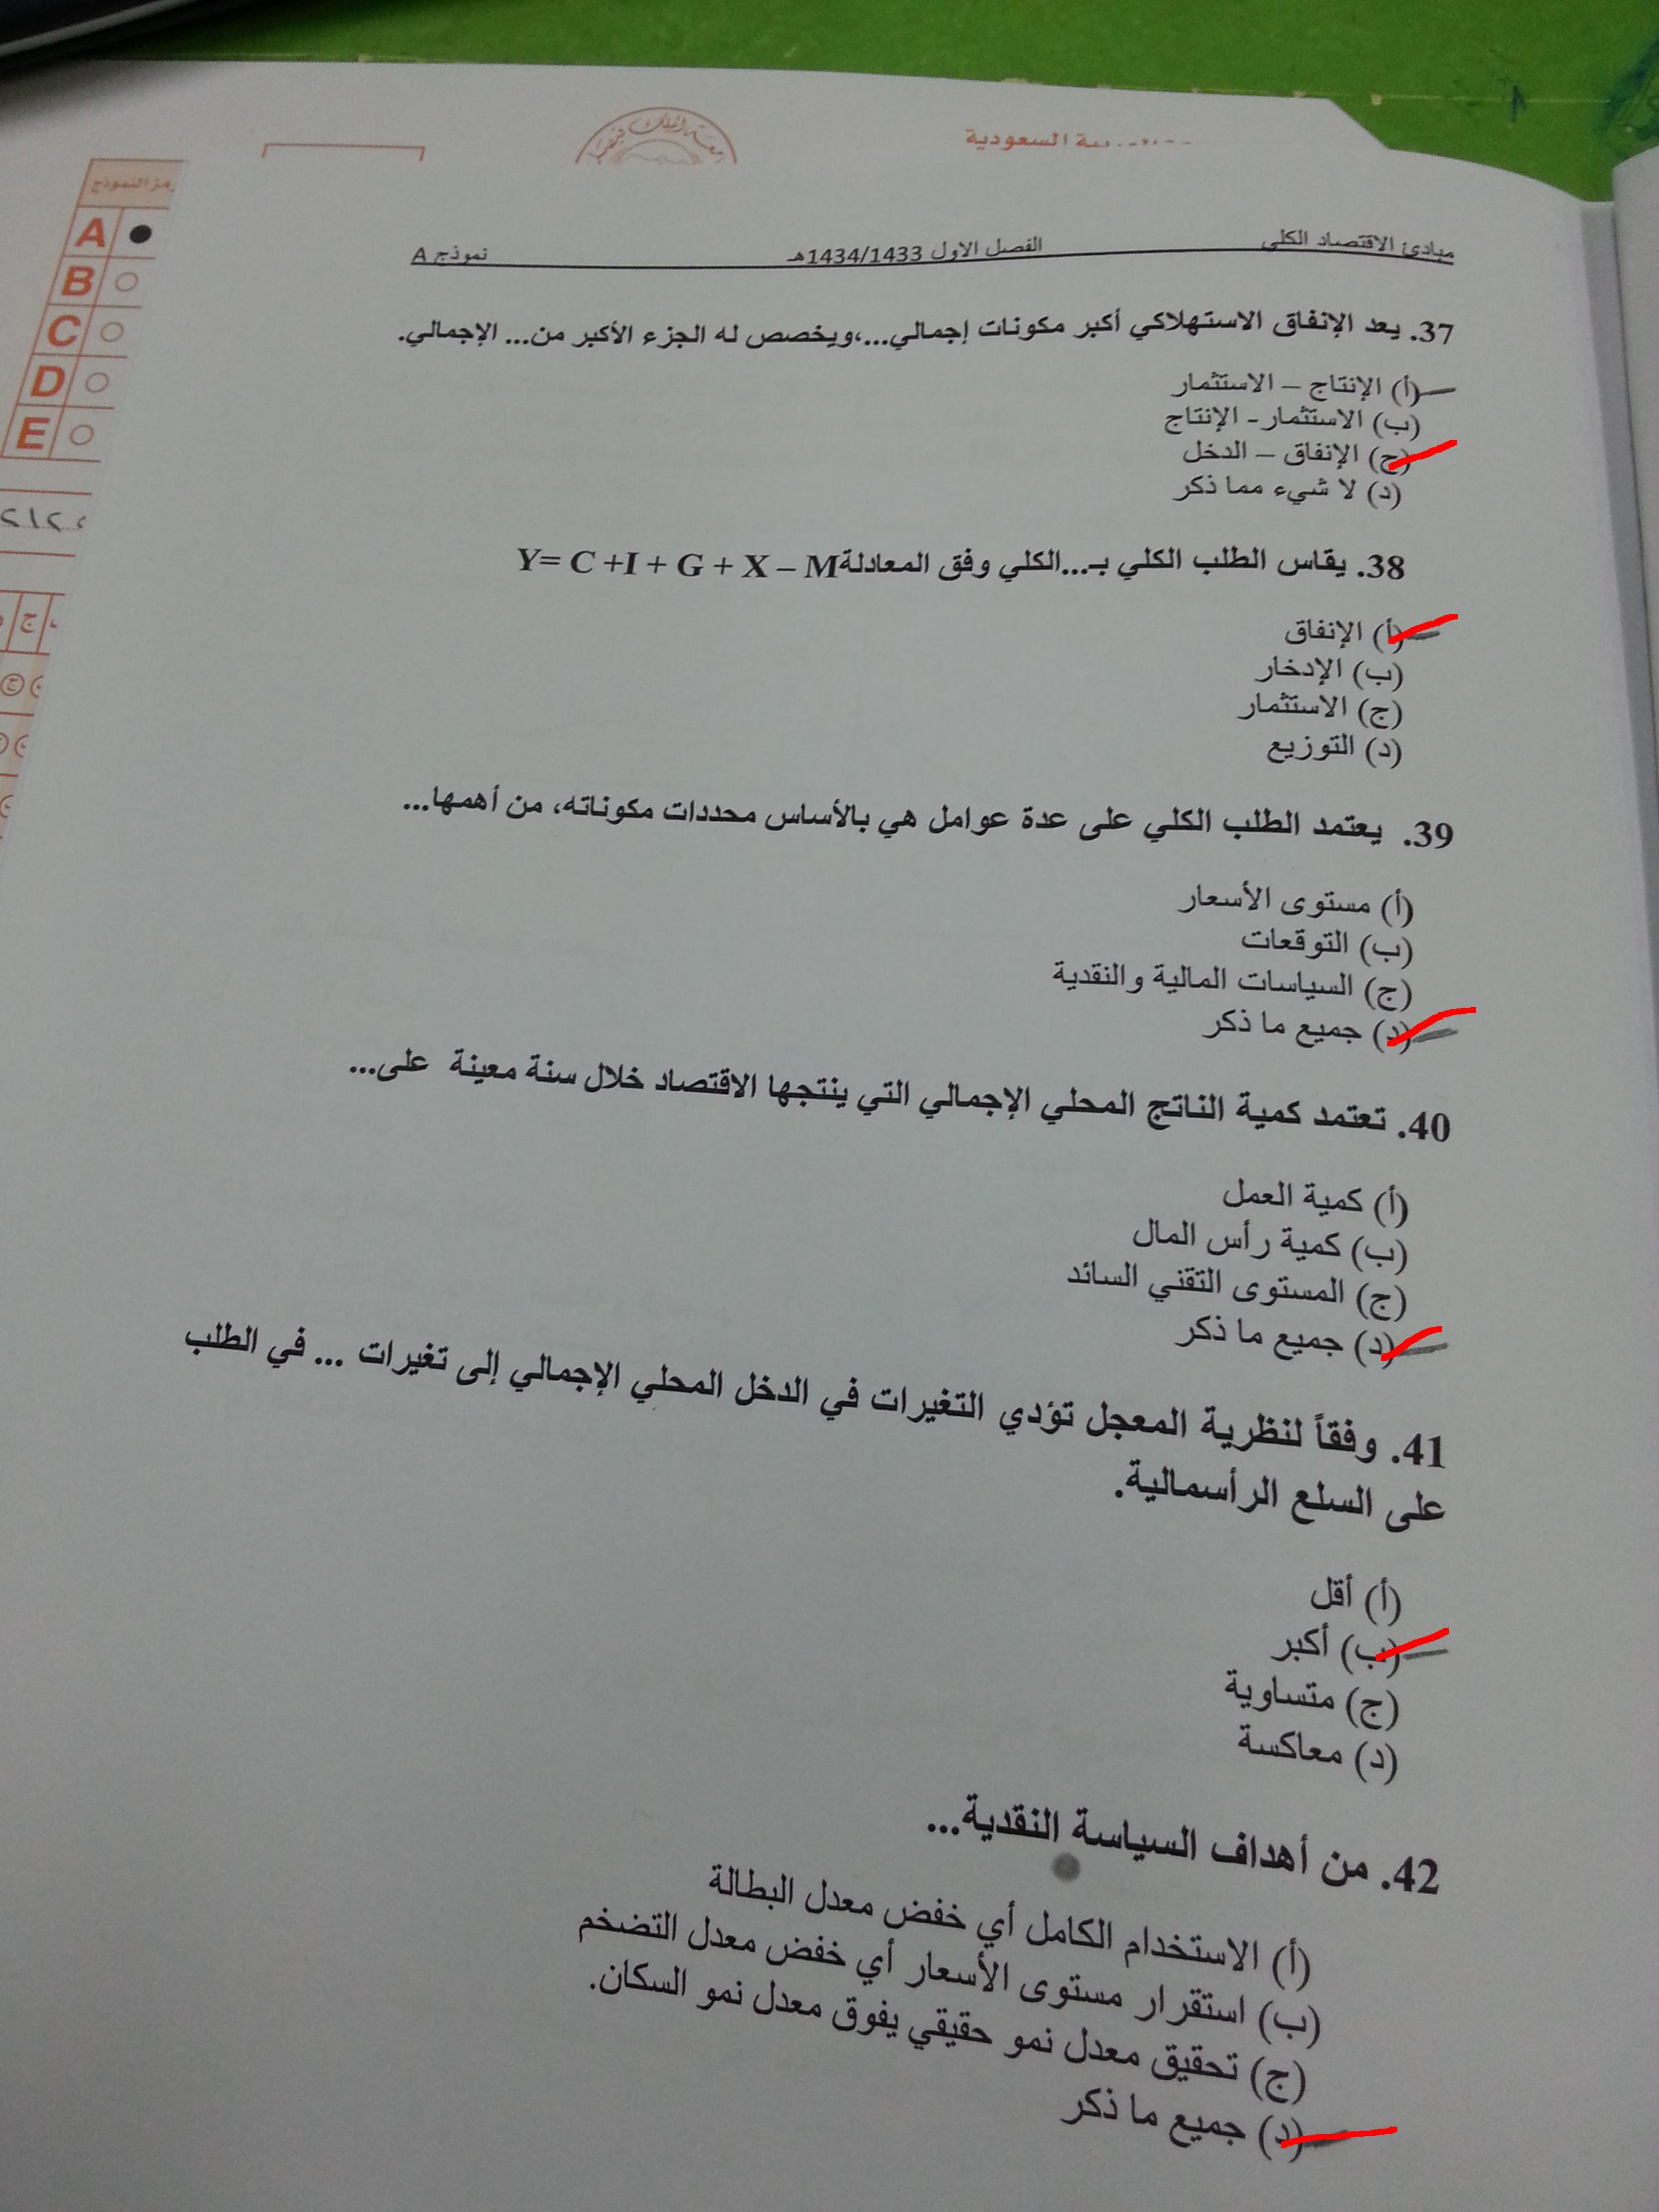 السعودية
رمز النموذج
A
B
C
D
E
مبادئ الاقتصاد الكلي
الفصل الاول 1434/1433هـ
نموذج A
37. يعد الإنفاق الاستهلاكي أكبر مكونات إجمالي...،ويخصص له الجزء الأكبر من... الإجمالي.
(أ) الإنتاج – الاستثمار
(ب) الاستثمار- الإنتاج
(ج) الإنفاق – الدخل
(د) لا شيء مما ذكر
38. يقاس الطلب الكلي بـ...الكلي وفق المعادلة Y= C +I + G + X – M
(أ) الإنفاق
(ب) الإدخار
(ج) الاستثمار
(د) التوزيع
39. يعتمد الطلب الكلي على عدة عوامل هي بالأساس محددات مكوناته، من أهمها...
(أ) مستوى الأسعار
(ب) التوقعات
(ج) السياسات المالية والنقدية
(د) جميع ما ذكر
40. تعتمد كمية الناتج المحلي الإجمالي التي ينتجها الاقتصاد خلال سنة معينة على...
(أ) كمية العمل
(ب) كمية رأس المال
(ج) المستوى التقني السائد
(د) جميع ما ذكر
41. وفقاً لنظرية المعجل تؤدي التغيرات في الدخل المحلي الإجمالي إلى تغيرات ... في الطلب
على السلع الرأسمالية.
(أ) أقل
(ب) أكبر
(ج) متساوية
(د) معاكسة
42. من أهداف السياسة النقدية...
(أ) الاستخدام الكامل أي خفض معدل البطالة
(ب) استقرار مستوى الأسعار أي خفض معدل التضخم
(ج) تحقيق معدل نمو حقيقي يفوق معدل نمو السكان.
(د) جميع ما ذكر